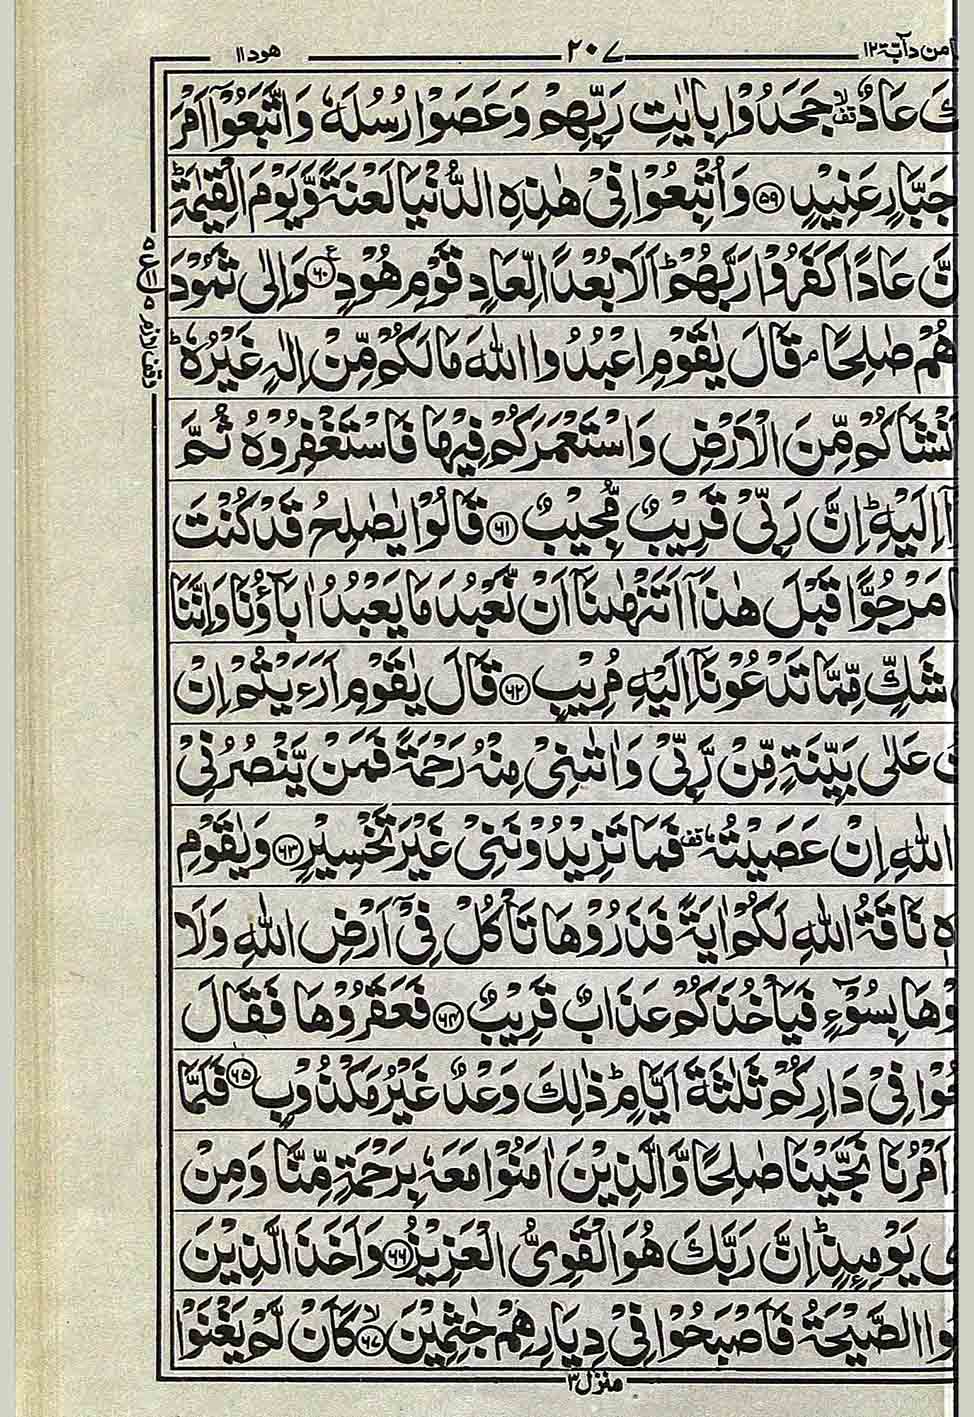 ومن دآبة ١٢ ٢٠٧ هود ١١
عَادٌ ۙ قف جَحَدُوْا بِاٰيٰتِ رَبِّهِمْ وَعَصَوْا رُسُلَهٗ وَاتَّبَعُوْٓا اَمْرَ
جَبَّارٍ عَنِيْدٍ ﴿۵۹﴾ وَاُتْبِعُوْا فِيْ هٰذِهِ الدُّنْيَا لَعْنَةً وَّيَوْمَ الْقِيٰمَةِ ؕ
عَادًا كَفَرُوْا رَبَّهُمْ ؕ اَلَا بُعْدًا لِّعَادٍ قَوْمِ هُوْدٍ ﴿۶۰﴾ ع وَاِلٰى ثَمُوْدَ
هُمْ صٰلِحًا ۘ قَالَ يٰقَوْمِ اعْبُدُوا اللّٰهَ مَا لَكُمْ مِّنْ اِلٰهٍ غَيْرُهٗ ؕ
نْشَاَكُمْ مِّنَ الْاَرْضِ وَاسْتَعْمَرَكُمْ فِيْهَا فَاسْتَغْفِرُوْهُ ثُمَّ
اِلَيْهِ ؕ اِنَّ رَبِّيْ قَرِيْبٌ مُّجِيْبٌ ﴿۶۱﴾ قَالُوْا يٰصٰلِحُ قَدْ كُنْتَ
مَرْجُوًّا قَبْلَ هٰذَآ اَتَنْهٰىنَآ اَنْ نَّعْبُدَ مَا يَعْبُدُ اٰبَآؤُنَا وَاِنَّنَا
شَكٍّ مِّمَّا تَدْعُوْنَآ اِلَيْهِ مُرِيْبٍ ﴿۶۲﴾ قَالَ يٰقَوْمِ اَرَءَيْتُمْ اِنْ
عَلٰى بَيِّنَةٍ مِّنْ رَّبِّيْ وَاٰتٰىنِيْ مِنْهُ رَحْمَةً فَمَنْ يَّنْصُرُنِيْ
اللّٰهِ اِنْ عَصَيْتُهٗ قف فَمَا تَزِيْدُوْنَنِيْ غَيْرَ تَخْسِيْرٍ ﴿۶۳﴾ وَيٰقَوْمِ
هٖ نَاقَةُ اللّٰهِ لَكُمْ اٰيَةً فَذَرُوْهَا تَاْكُلْ فِيْٓ اَرْضِ اللّٰهِ وَلَا
وْهَا بِسُوْٓءٍ فَيَاْخُذَكُمْ عَذَابٌ قَرِيْبٌ ﴿۶۴﴾ فَعَقَرُوْهَا فَقَالَ
عُوْا فِيْ دَارِكُمْ ثَلٰثَةَ اَيَّامٍ ؕ ذٰلِكَ وَعْدٌ غَيْرُ مَكْذُوْبٍ ﴿۶۵﴾ فَلَمَّا
اَمْرُنَا نَجَّيْنَا صٰلِحًا وَّالَّذِيْنَ اٰمَنُوْا مَعَهٗ بِرَحْمَةٍ مِّنَّا وَمِنْ
يَوْمِئِذٍ ؕ اِنَّ رَبَّكَ هُوَ الْقَوِيُّ الْعَزِيْزُ ﴿۶۶﴾ وَاَخَذَ الَّذِيْنَ
وا الصَّيْحَةُ فَاَصْبَحُوْا فِيْ دِيَارِهِمْ جٰثِمِيْنَ ﴿۶۷﴾ ۙ كَاَنْ لَّمْ يَغْنَوْا
منزل ۳
وقف لازم